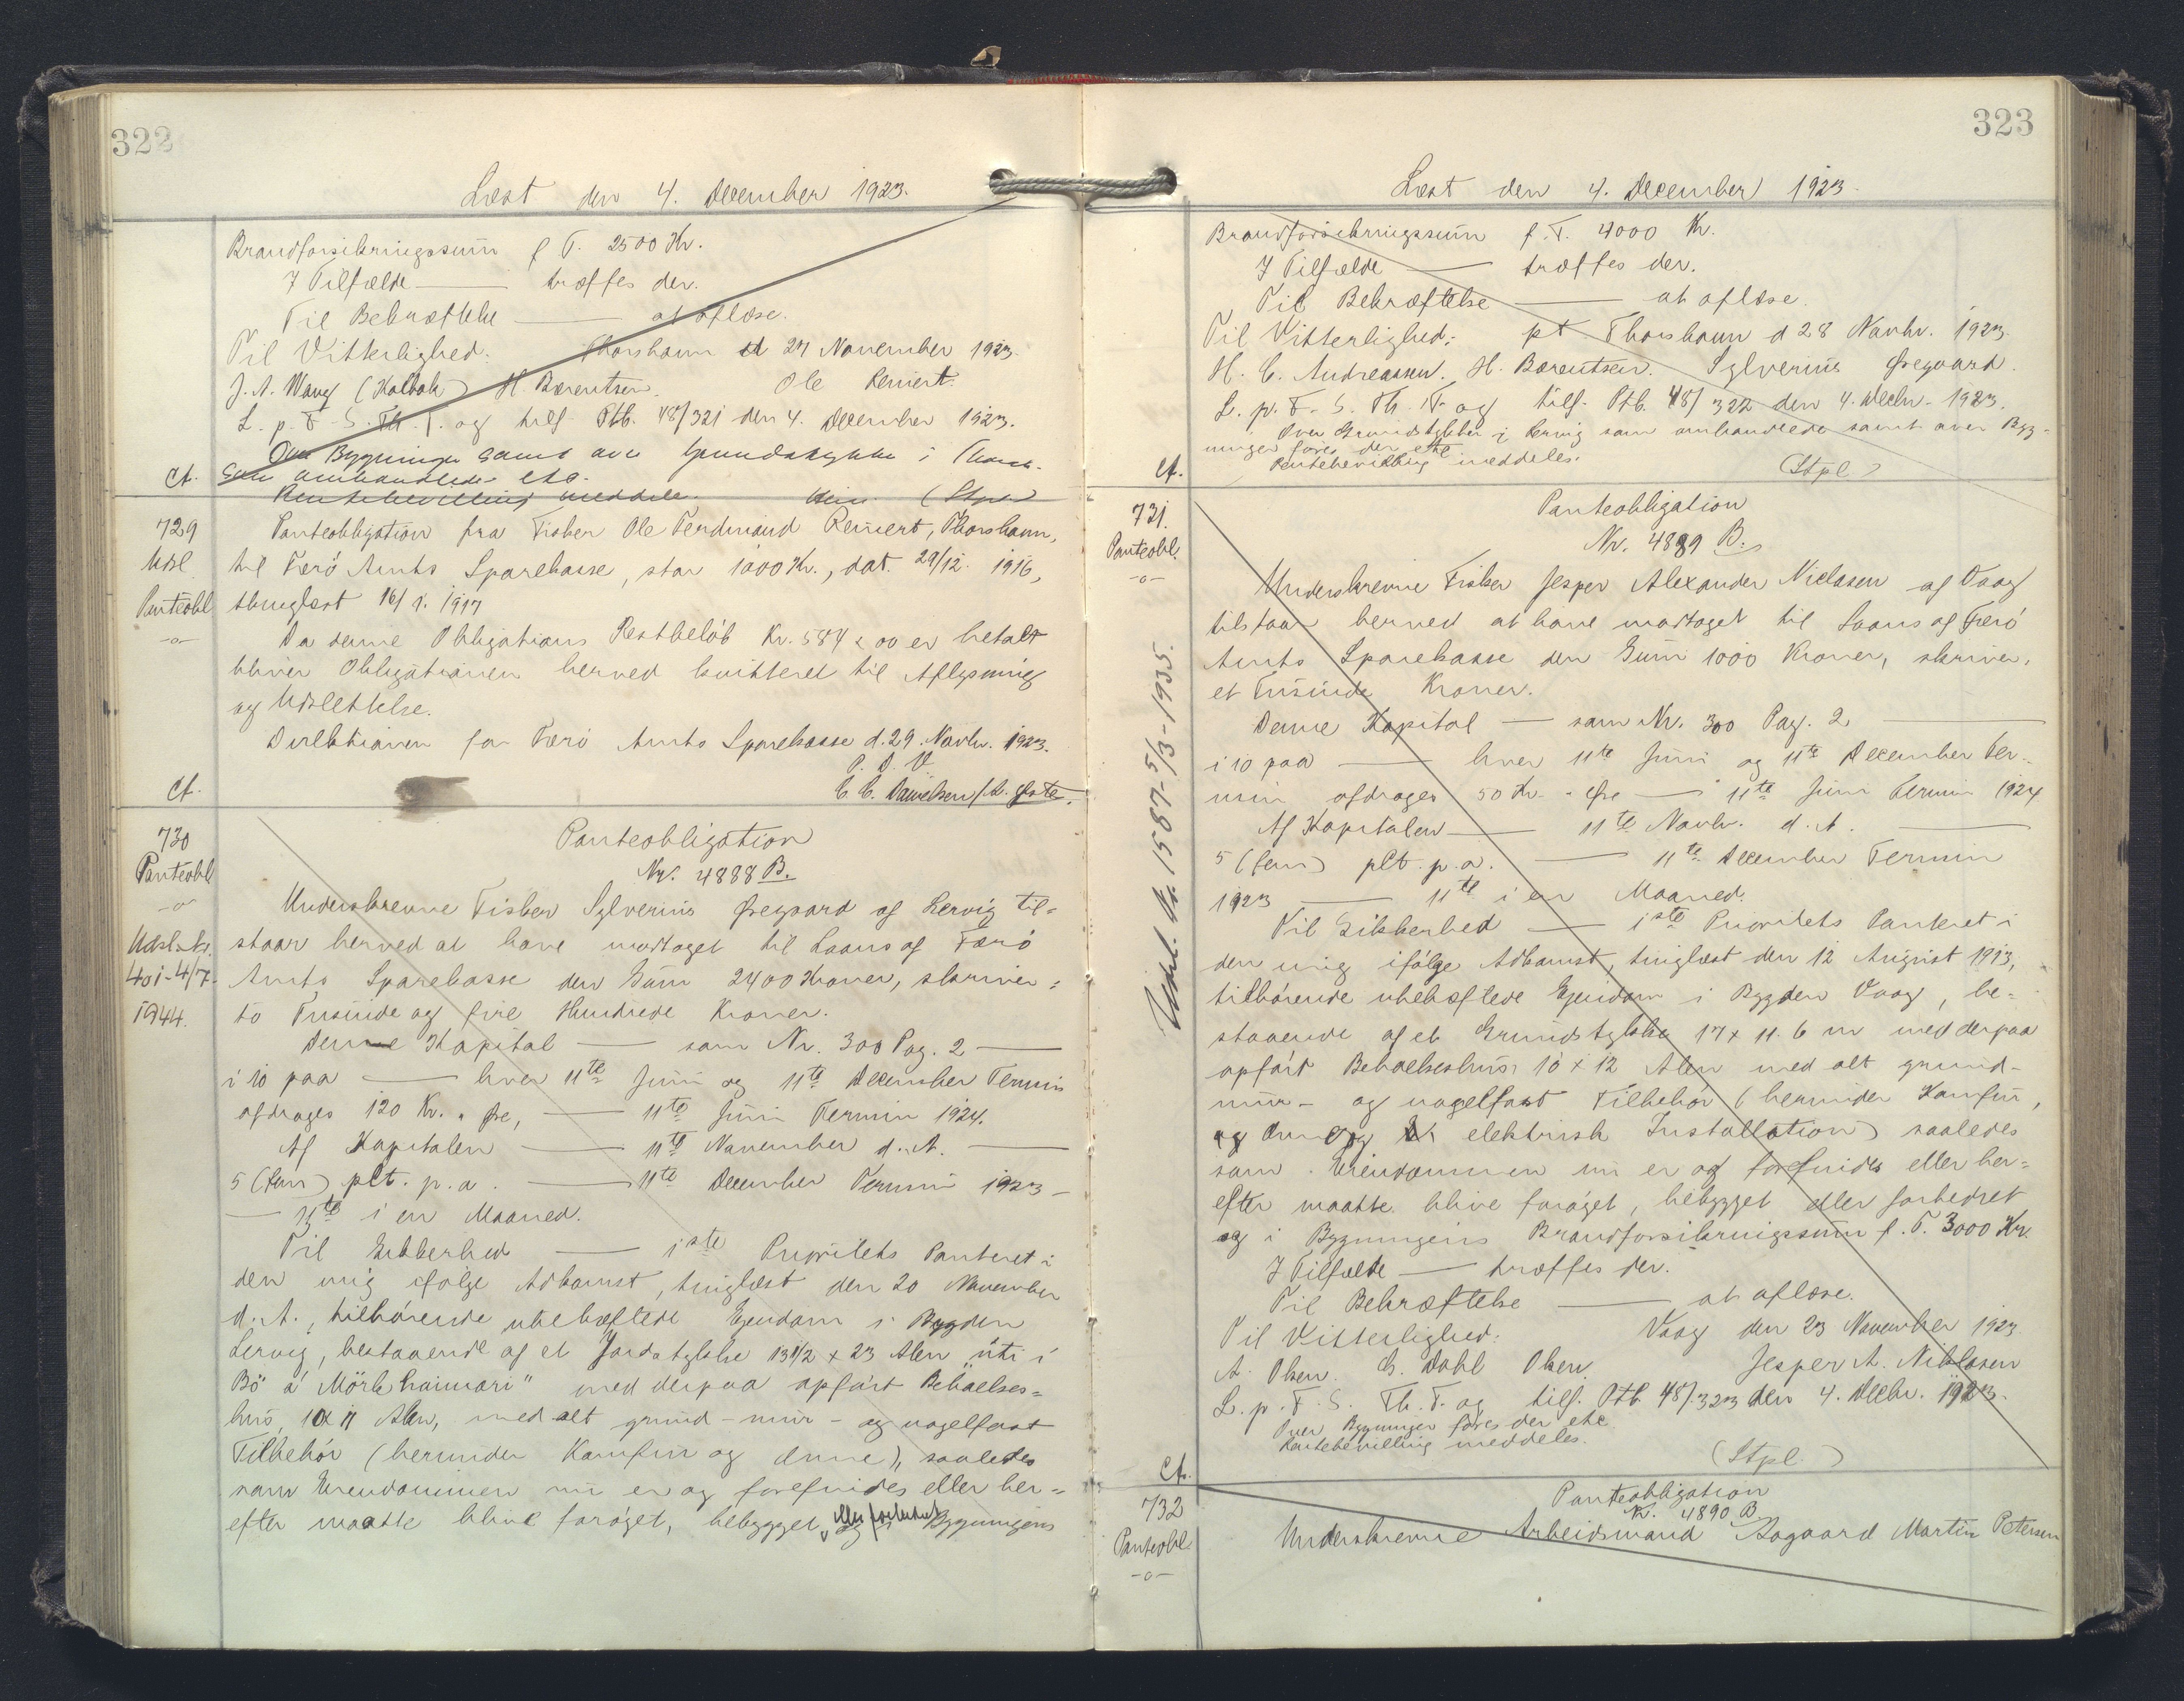 322
Læst den 4. December 1923.
Brandforsikringssum f. T. 2500 Kr.
I Tilfælde — træffes der.
Til Bekræftelse — at aflæse.
Til Vitterlighed: Thorshavn d 27 November 1923.
J. A. Wang (Kalbak) H. Bærentsen. Ole Reinert.
L. p. F. S. Th. T. og tilf. Ptb. 48/321 den 4. December 1923.
Over Bygninger samt over Grundstykke i
som ombandlede etc.
Rentebevilling meddeles. (Stpl)
Ct.
729
Udsl.
Panteobl
-o-
Panteobligation fra Fisker Ole Ferdinand Reinert, Thorshavn,
til Færö Amts Sparekasse, stor 1000 Kr., dat. 29/12. 1916,
thinglæst 16/1. 1917
Da denne Obligations Restbelöb Kr. 584 x 00 er betalt
bliver Obligationen herved kvitteret til Aflysning
og Udslettelse.
Direktionen for Færö Amts Sparekasse d. 29. Novbr. 1923.
P. D. V.
C. C. Danielsen /
Ct.
730
Panteobl
-o-
Udsl. Nr.
401-4/7.
1944.
Panteobligation
Nr. 4888 B.
Underskrevne Fisker Sylverius Øregaard af Lervig til=
staar herved at have modtaget til Laans af Færö
Amts Sparekasse den Sum 2400 Kroner, skriver:
to Tusinde og fire Hundrede Kroner.
Denne Kapital — som Nr. 300 Pag. 2 —
i 10 paa — hver 11te Juni og 11te December Termin
afdrages 120 Kr. " Øre, — 11te Juni Termin 1924.
Af Kapitalen — 11te November d. A. —
5 (fem) pCt. p. a. — 11te December Termin 1923 —
— 11te i en Maaned.
Til Sikkerhed — 1ste Prioritets Panteret i
den mig ifölge Adkomst, tinglæst den 20 November
d. A., tilhörende ubehæftede Ejendom i Bygden
Lervig, bestaaende af et Jordstykke 13 1/2 x 23 Alen "úti i
Bö á Mörkhaimari" med derpaa opfört Beboelses=
hus, 10 x 11 Alen, med alt grund- mur- og nagelfast
Tilbehör (herunder Komfur og Ovne), saaledes
som Ejendommen nu er og forefindes eller her=
efter maatte blive foröget, bebygget eller forbedret og i Bygningens
323
Læst den 4. December 1923.
Brandforsikringssum f. T. 4000 Kr.
I Tilfælde — træffes der.
Til Bekræftelse — at aflæse.
Til Vitterlighed: pt Thorshavn d 28 Novbr. 1923.
H. C. Andreassen. H. Bærentsen. Sylverius Øregaard.
L. p. F. S. Th. T. og tilf. Ptb. 48/322 den 4. Decbr. 1923.
Over Grundstykket i Lervig som omhandlede samt over Byg-
ninger föres der etc
Rentebevilling meddeles. (Stpl)
Ct.
731.
Panteobl.
-o-
Udsl. Nr. 1587-5/3-1935.
Panteobligation
Nr. 4889 B.
Underskrevne Fisker Jesper Alexander Niclasen af Vaag
tilstaar herved at have modtaget til Laans af Færö
Amts Sparekasse den Sum 1000 Kroner, skriver,
et Tusinde Kroner.
Denne Kapital — som Nr. 300 Pag. 2. —
i 10 paa — hver 11te Juni og 11te December Ter=
min afdrages 50 Kr. " Øre — 11te Juni Termin 1924
Af Kapitalen — 11te Novbr. d. A. —
5 (fem) pCt. p. a. — 11te December Termin
1923 — 11te i en Maaned.
Til Sikkerhed — 1ste Prioritets Panteret i
den mig ifölge Adkomst, tinglæst den 12 August 1913,
tilhörende ubehæftede Ejendom i Bygden Vaag, be=
staaende af et Grundstykke 17 x 11.6 m med derpaa
opfört Beboelseshus, 10 x 12 Alen med alt grund-
mur- og nagelfast Tilbehör (herunder Komfur,
og Ovne og elektrisk Installation) saaledes
som Ejendommen nu er og forefindes eller her=
efter maatte blive foröget, bebygget eller forbedret
og i Bygningens Brandforsikringssum f. T. 3000 Kr.
I Tilfælde — træffes der.
Til Bekræftelse — at aflæse.
Til Vitterlighed: Vaag den 23 November 1923.
A. Olsen. G. Dahl Olsen. Jesper A. Niklasen
L. p. F. S. Th. T. og tilf. Ptb. 48/323 den 4. Decbr. 1923.
Over Bygninger föres der etc
Rentebevilling meddeles.
(Stpl.)
Ct.
732
Panteobl.
-o-
Panteobligation
Nr. 4890 B
Underskrevne Arbeidsmand Aagaard Martin Petersen